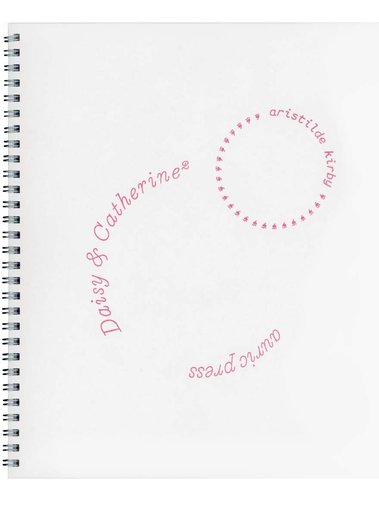 Daisy & Catherine²
aristilde kirby
auric press